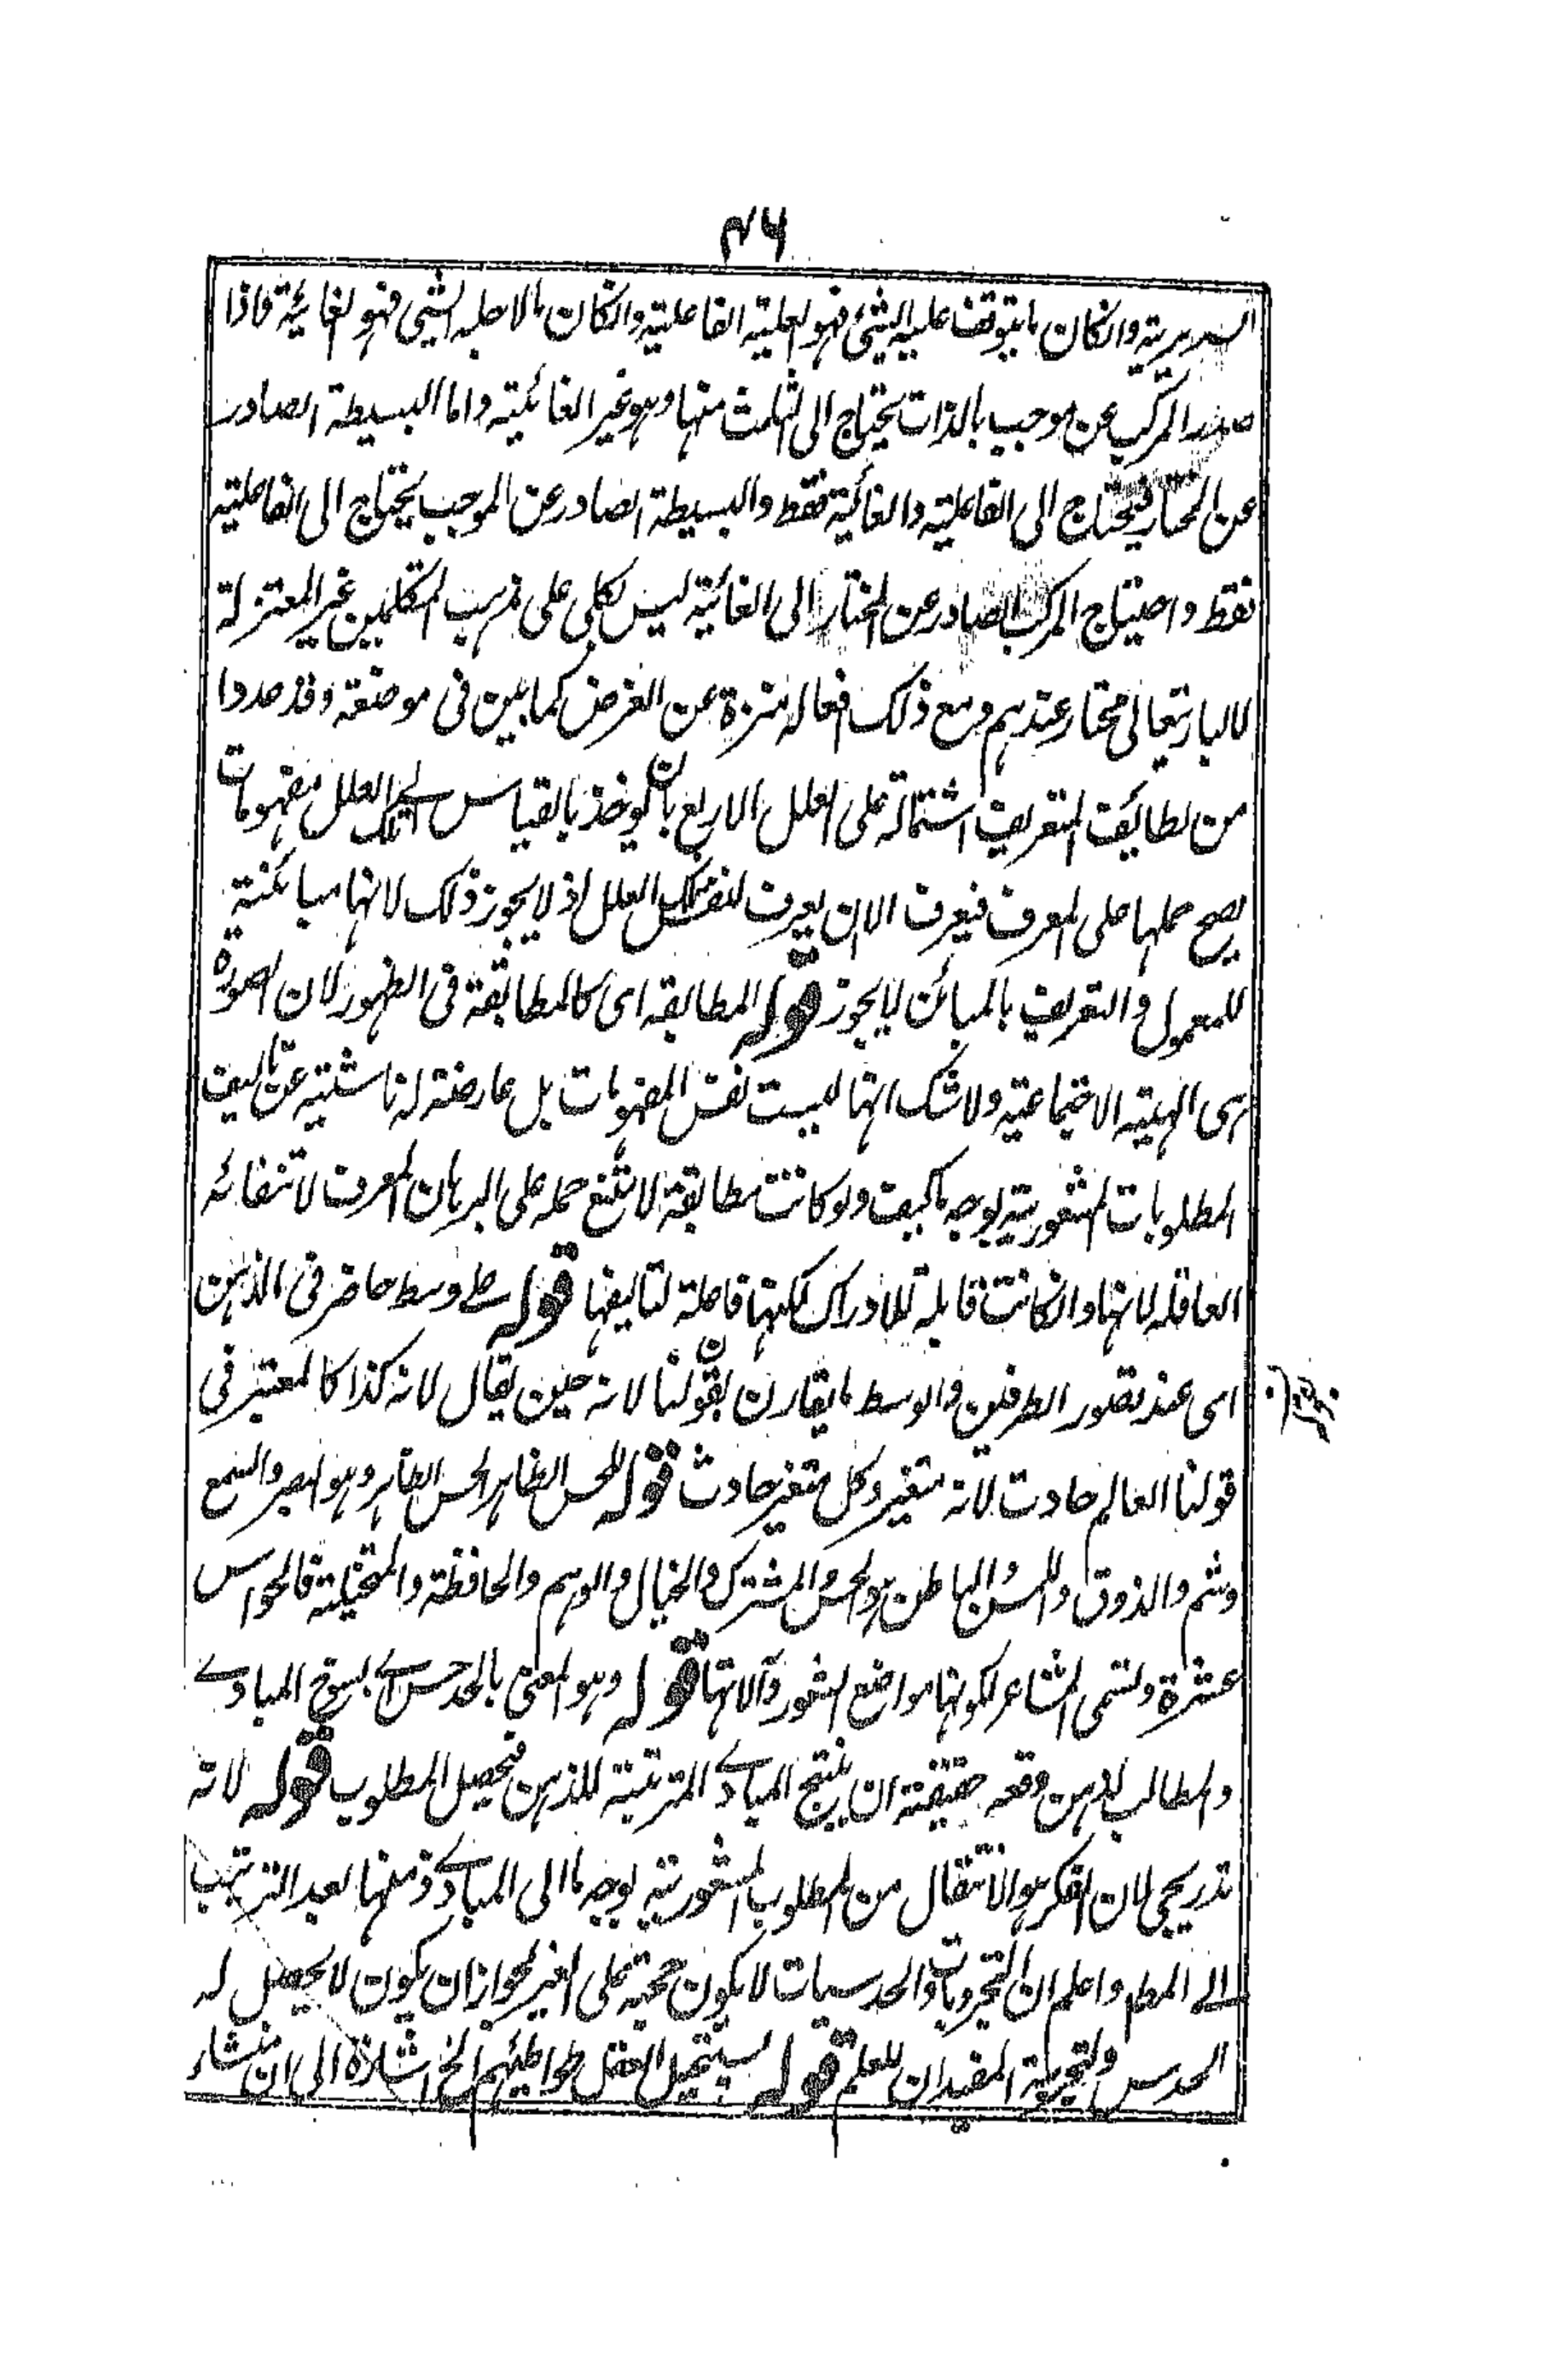 ٤٦
وانكان ما يتوقف عليه الشئ فهو العلية الفاعلية وانكان ما لاجله الشئ فهو الغائية فاذا
المركب عن موجب بالذات يحتاج الى الثلث منها وهو غير الغائية واما البسيطة الصادر
عن المختار فيحتاج الى الفاعلية والغائية فقط والبسيطة الصادر عن الموجب يحتاج الى الفاعلية
فقط واحتياج المركب الصادر عن المختار الى الغائية ليس لكلى على مذهب المتكلمين غير المعتزلة
لا البارتعالى مختار عندهم ومع ذلك افعاله منزة عن الغرض كما بين فى موضعة وقد عددا
من لطائف التعريف اشتماله على العلل الاربع بان يوخذ بالقياس الى تلك العلل مفهومات
يصح حملها على المعرف فيعرف الان يعرف لنفس تلك العلل اذ لا يجوز ذلك لانها مبائنة
للمعمول والتعريف بالمبائن لا يجوز قوله المطابقه اى كالمطابقة فى الظهور لان الصورة
هى الهيئة الاجتماعية ولا شك انها ليست نفس المفهومات بل عارضة له ناشئية عن تاليف
المطلوبات المشعورية بوجه ما كيف ولو كانت مطابقة لا متنع حمله على البرهان المعرف لانتفائه
العاقله لانها وانكانت قابلة للادراك لكنها فاعلة لتاليفها قوله على وسط حاضر فى الذهن
اى عند تصور الطرفين والوسط ما يقارن بقولنا لانه حين يقال لانه كذا كالمعتبر فى
قولنا العالم حادث لانه متغير وكل متغير حادث قوله الحس الظاهر الحس الظاهر وهو البصر والسمع
وشم والذوق واللمس والباطن هو الحس المشترك والخيال والوهم والحافظة والمتخيلية فالحواس
عشرة وتسمى المشاعر لكونها مواضع الشعور وآلاتها قوله وهو المعنى بالحدس اى بسنوح المبادى
والمطالب للذهن دفعه حقيقته ان ينتج المبادى المترتبة للذهن فيحصل المطلوب قوله لانه
تدريجى لان الفكر هو الانتقال من المطلوب المشعورية بوجه ما الى المبادى ومنها بعد الترتيب
الى المطم واعلم ان التجروبات والحدسيات لا يكون حجية على الغير لجواز ان يكون لا يحصل له
الحدس والتجربة المفيدان للعلم قوله يستحيل العقل طواطيهم الخ اشارة الى ان منشاء